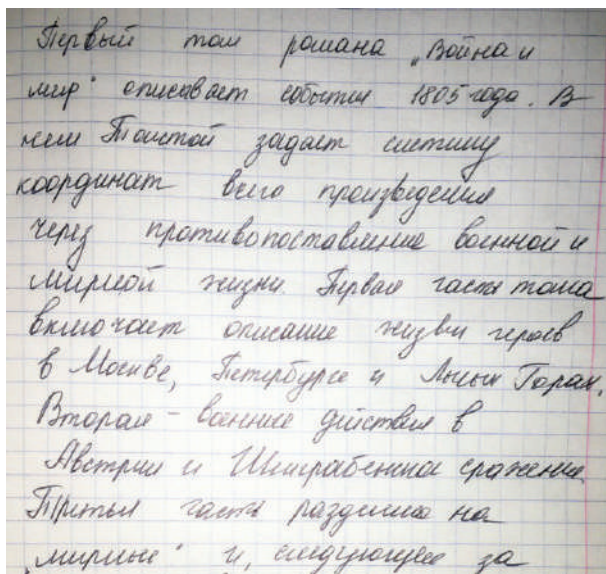 Первый том романа „Война и
мир“ описывает события 1805 года. В
нем Толстой задает систему
координат всего произведения
через противопоставление военной и
мирной жизни. Первая часть тома
включает описание жизни героев
в Москве, Петербурге и Лысых Горах.
Вторая – военные действия в
Австрии и Шенграбенское сражение.
Третья часть разделена на
„мирные“ и, следующее за